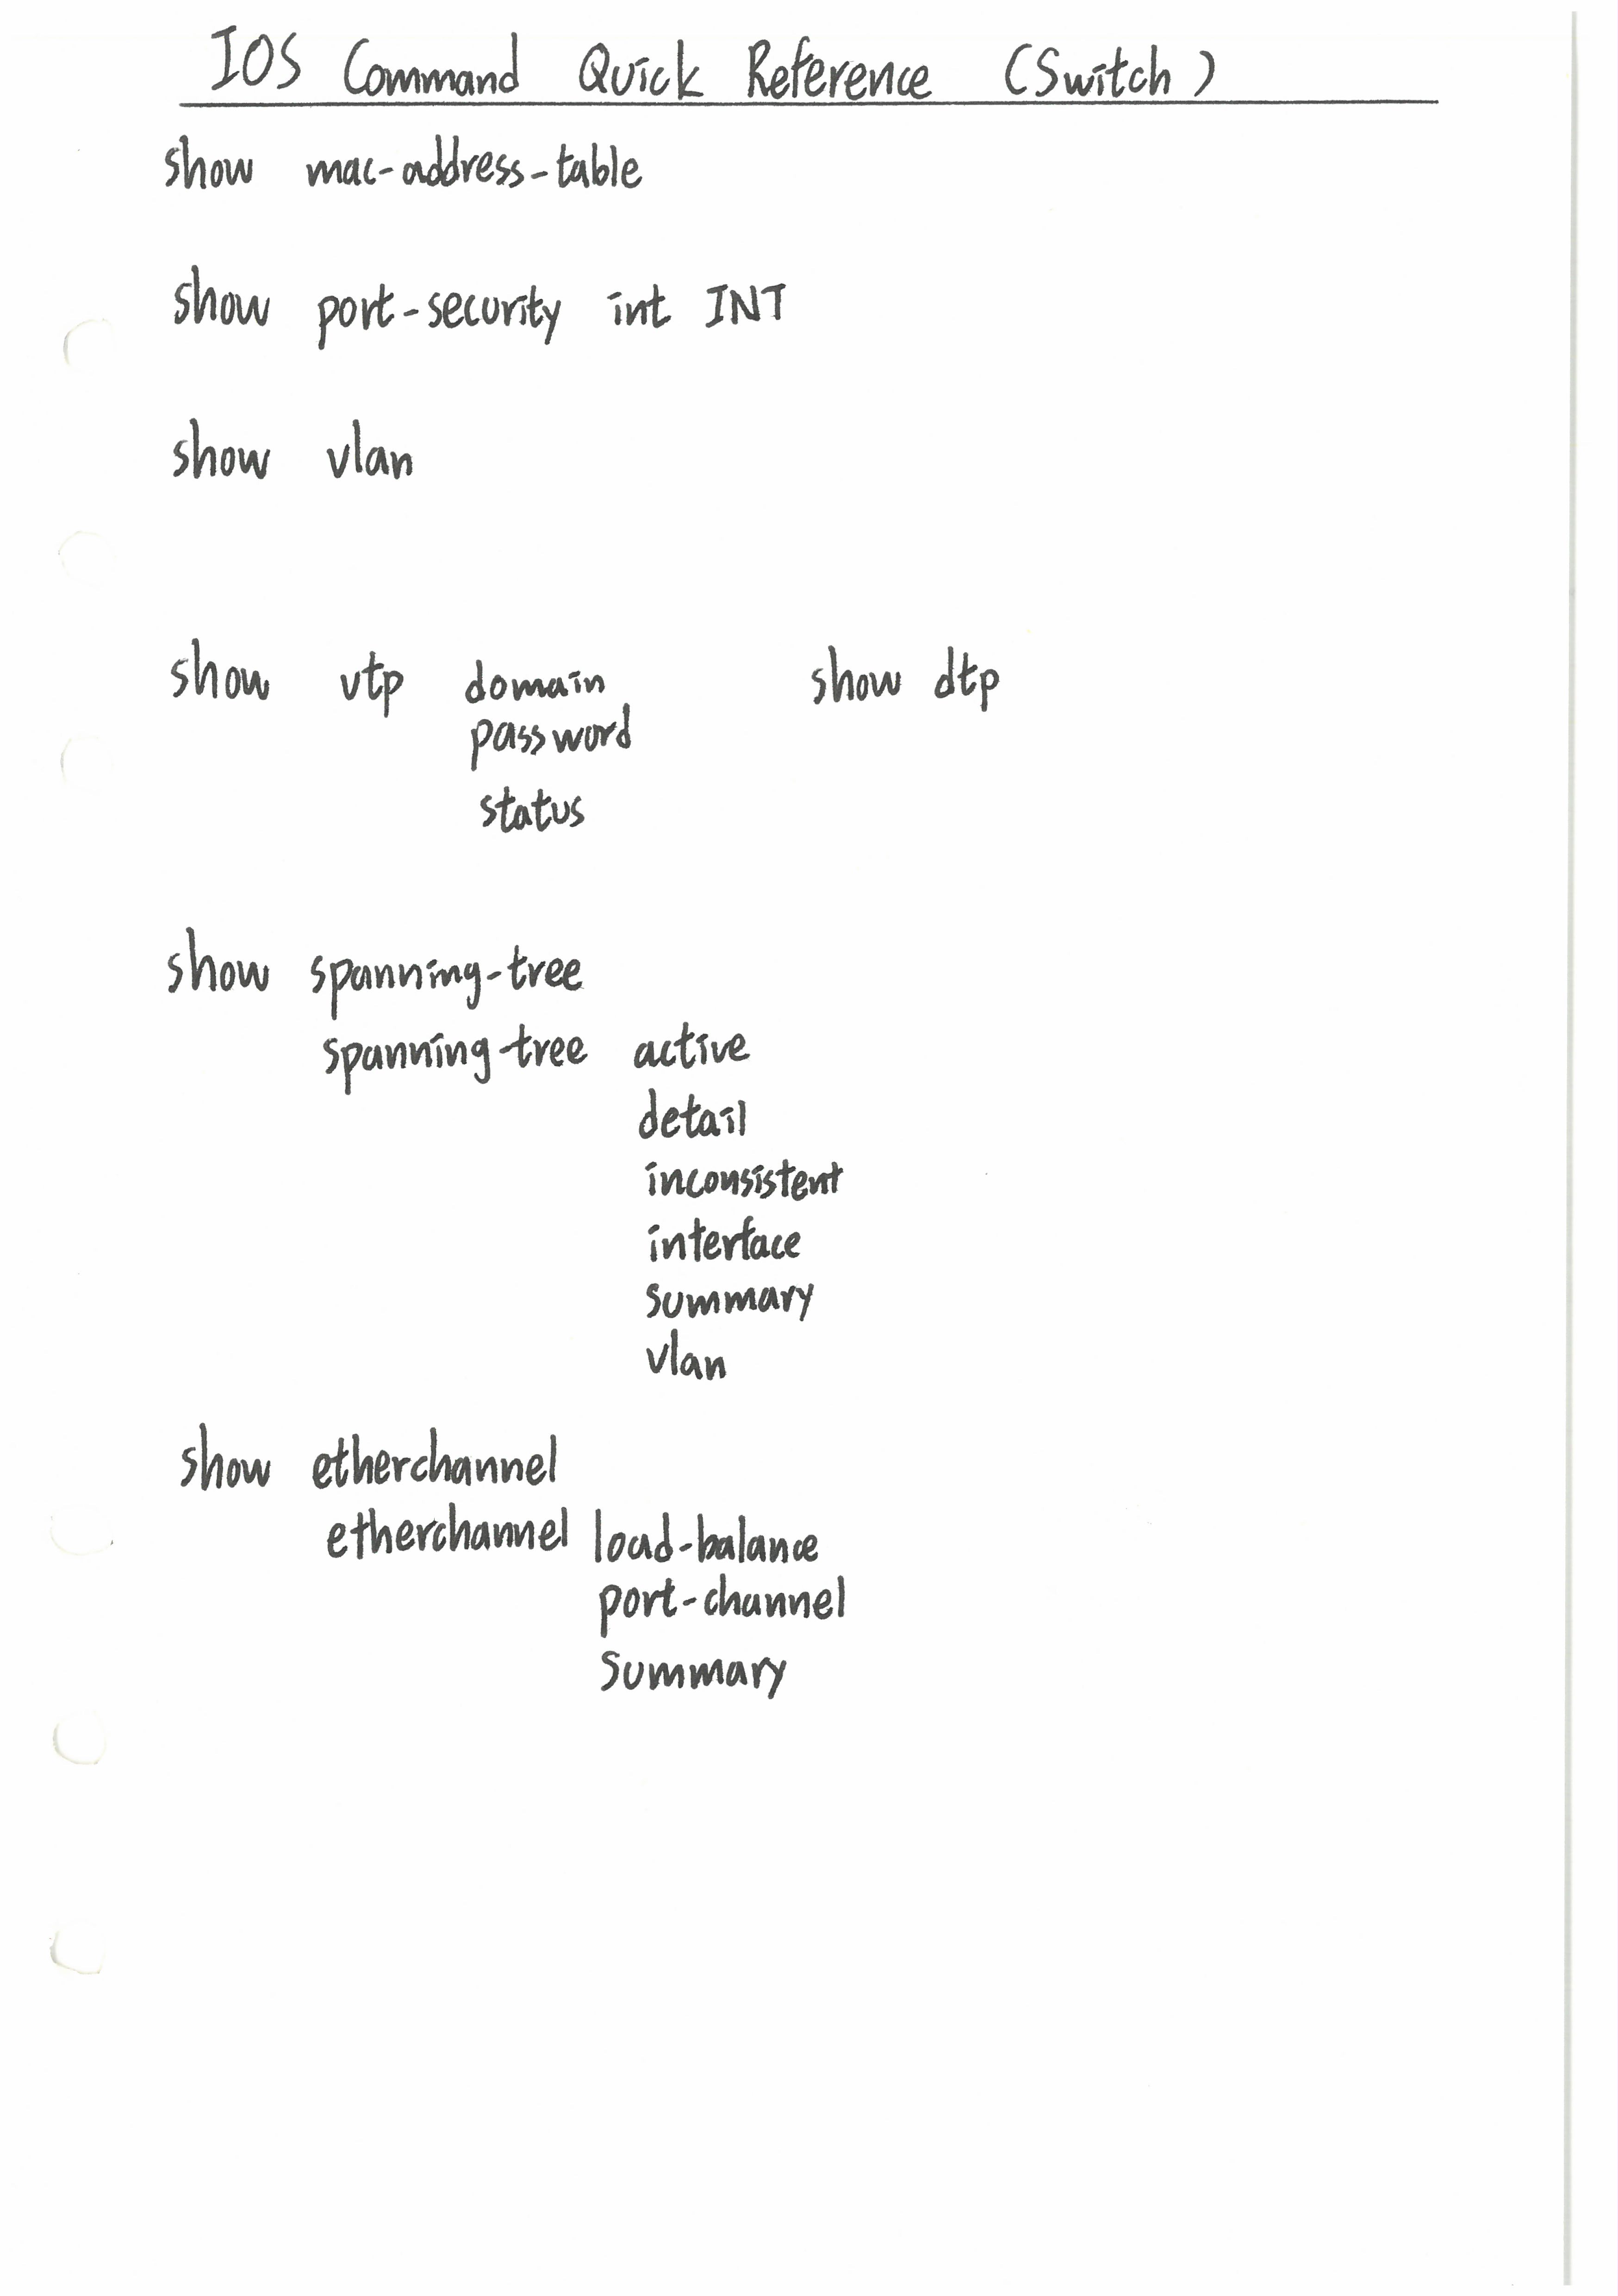 IOS Command Quick Reference (Switch)
show mac-address-table
show port-security int INT
show vlan
show vtp domain show dtp
password
status
show spanning-tree
spanning-tree active
detail
inconsistent
interface
summary
vlan
show etherchannel
etherchannel load-balance
port-channel
summary